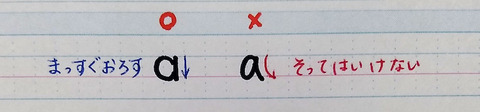 ○ ×
まっすぐおろす a↓ a そってはいけない